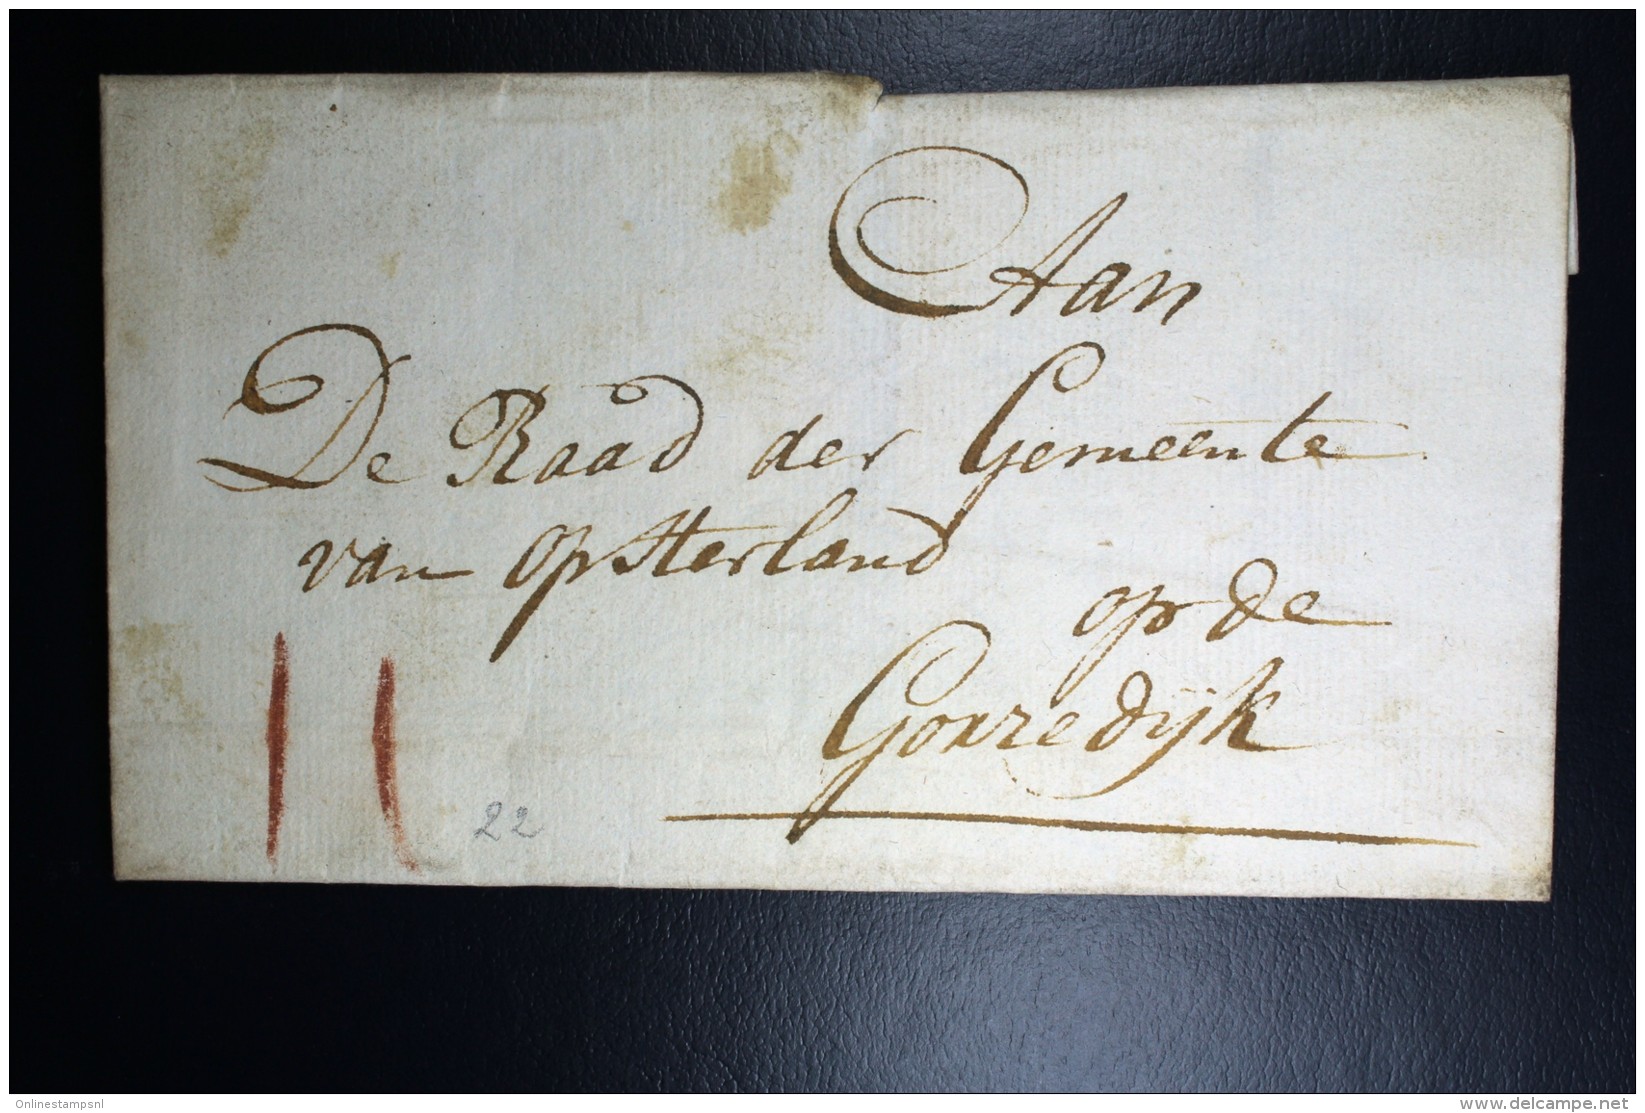 Aan
De Raad der Gemeente
van Opsterland
op de
Gorredijk
11
22
Onlinestampsnl
www.delcampe.net